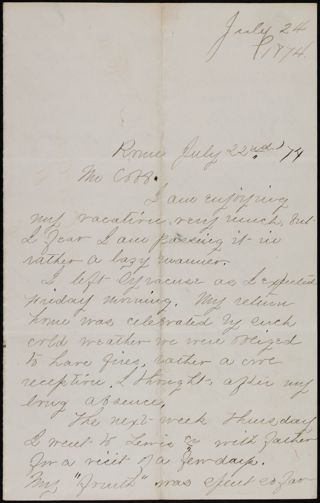 July 24
1874.
Rome July 22nd 74
Mr Cobb.
I am enjoying
my vacation very much, but
I fear I am passing it in
rather a lazy manner.
I left Syracuse as I expected
Friday morning. My return
home was celebrated by such
cold weather we were obliged
to have fires, rather a cool
reception, I thought, after my
long absence.
The next week Thursday
I went to Lewis Co with Father
for a visit of a few days.
My "Fourth" was spent so far